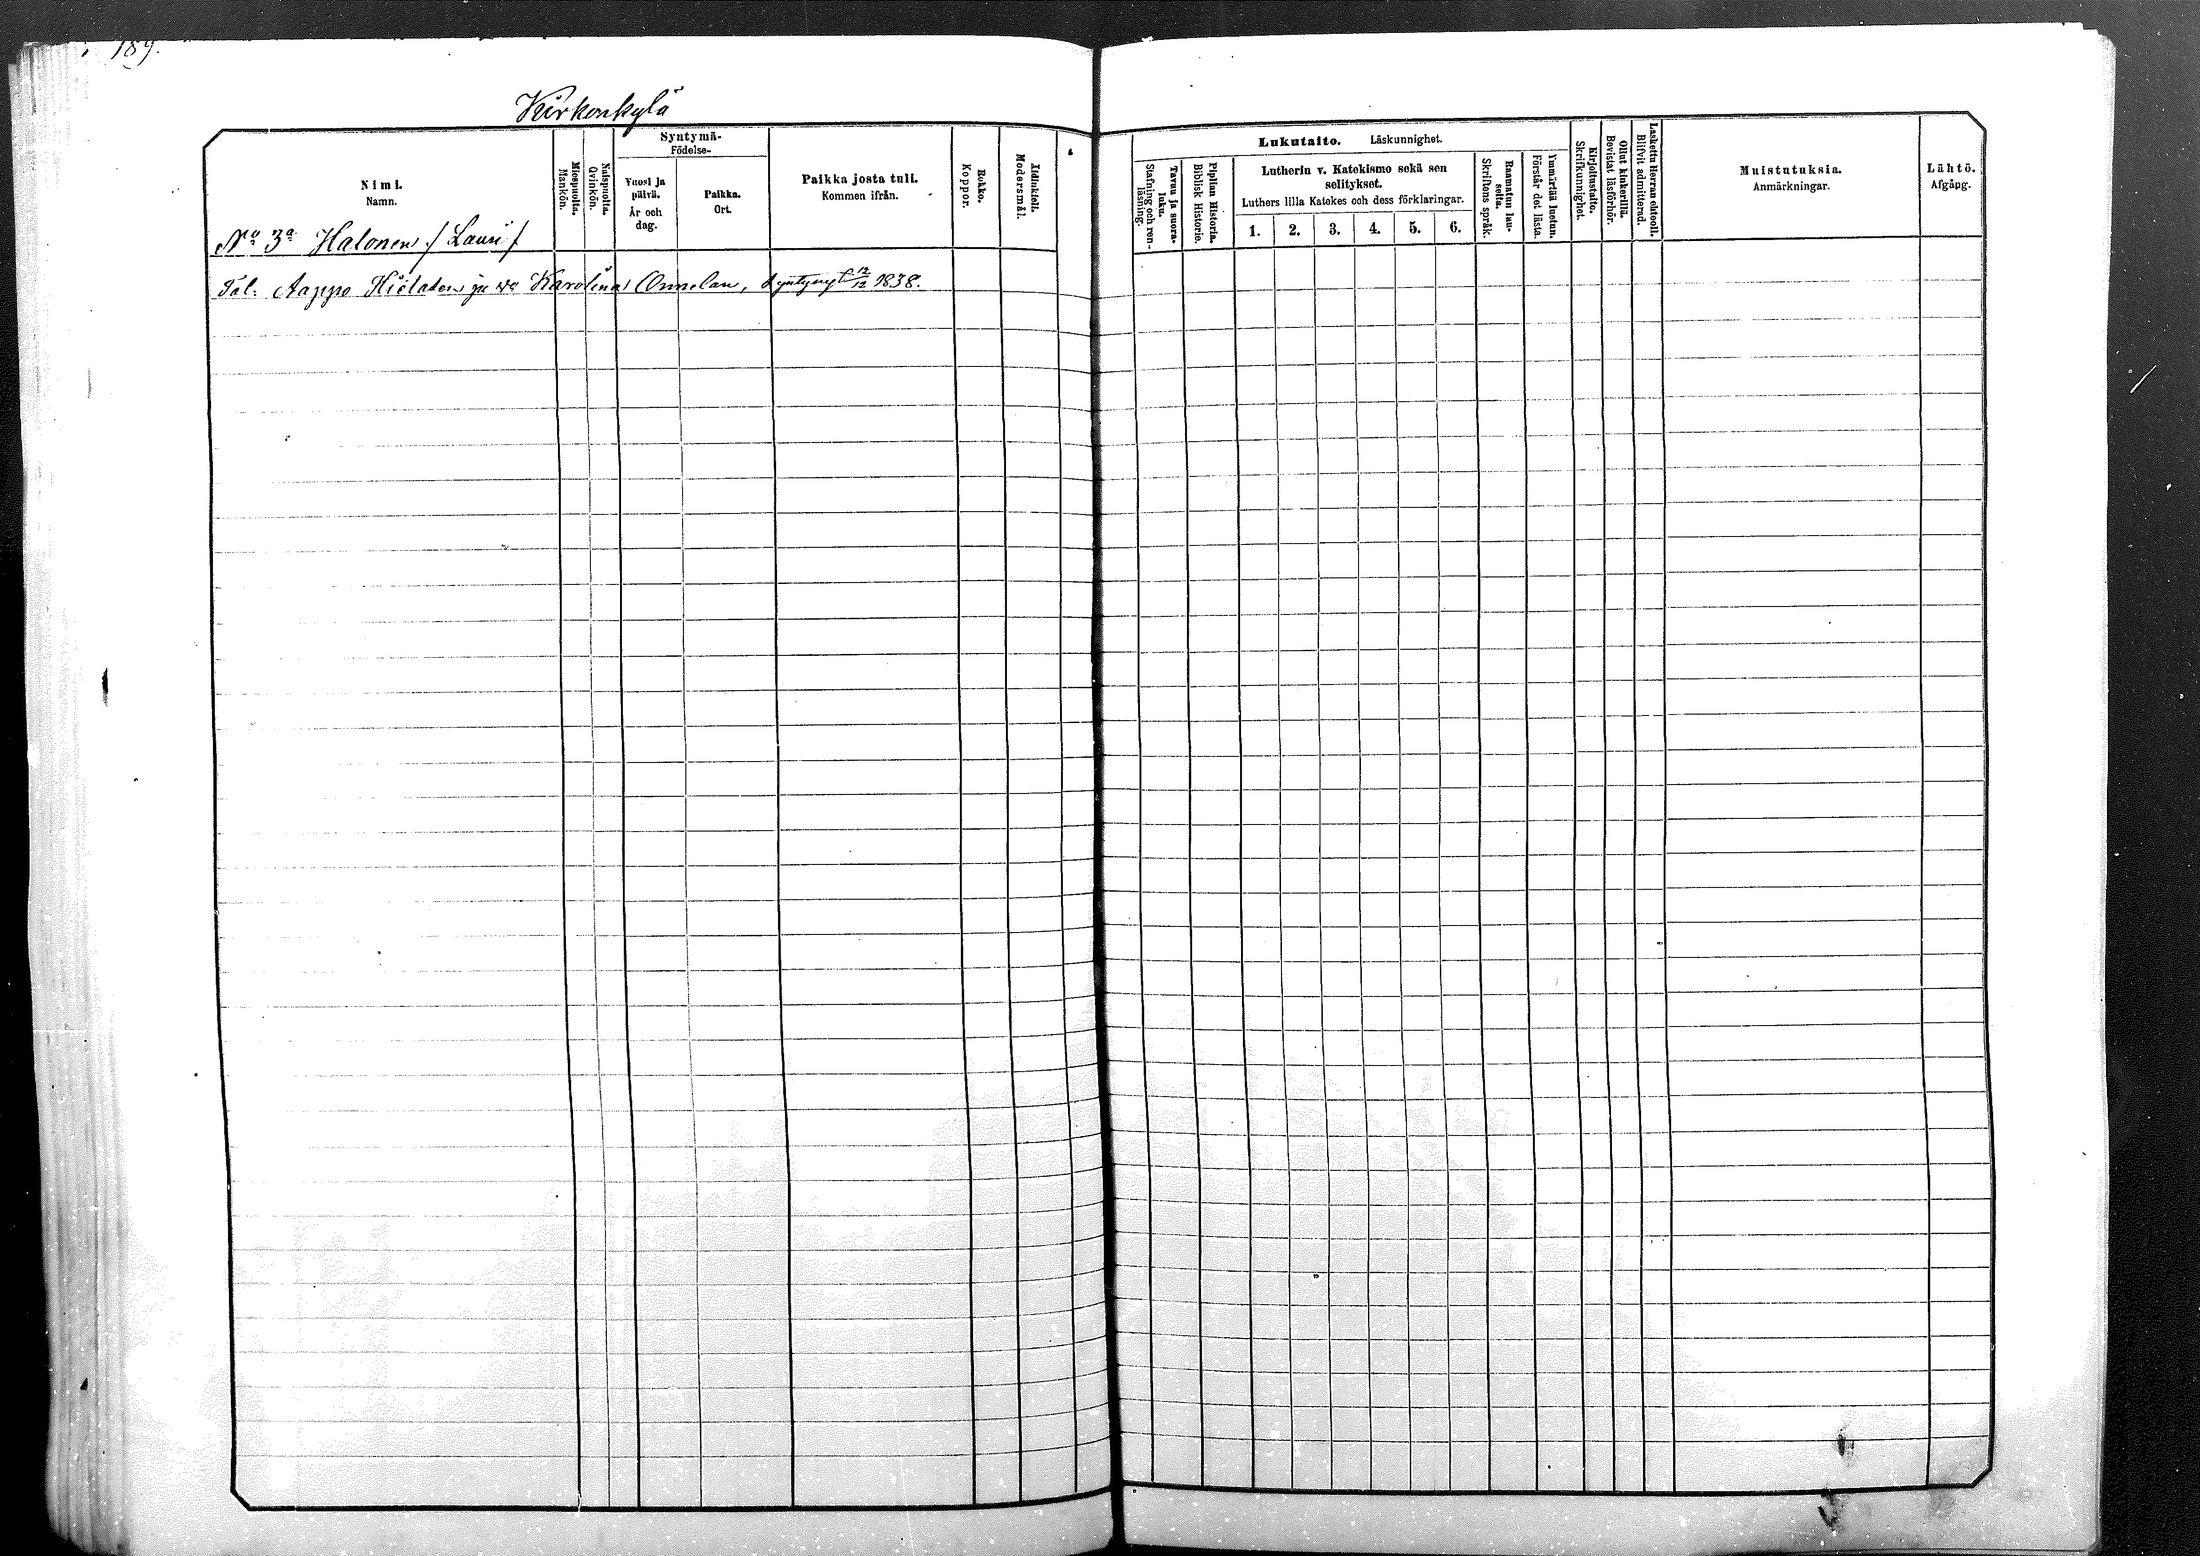 189.
Kirkonkylä
Nimi.
Namn.
Miespuolta.
Mankön.
Naispuolta.
Qvinkön.
Syntymä-
Födelse-
Vuosi ja
päivä.
År och
dag.
Paikka.
Ort.
Paikka josta tuli.
Kommen ifrån.
Rokko.
Koppor.
Äidinkieli.
Modersmål.
Lukutaito. Läskunnighet.
Tavuu ja suora-
luku.
Stafning och ren-
läsning.
Piplian Historia.
Biblisk Historie.
Lutherin v. Katekismo sekä sen
selitykset.
Luthers lilla Katekes och dess förklaringar.
1. 2. 3. 4. 5. 6.
Raamatun lau-
seita.
Skriftens språk.
Ymmärtää luetun.
Förstår det lästa.
Kirjoitustaito.
Skrifkunnighet.
Ollut kinkerillä.
Bevistat läsförhör.
Laskettu Herran ehtooll.
Blifvit admitterad.
Muistutuksia.
Anmärkningar.
Lähtö.
Afgång.
No 3a Halonen /Lauri/
Tal. Aappo ja vo Karolina Onnelan, syntynyt 12/12 1838.